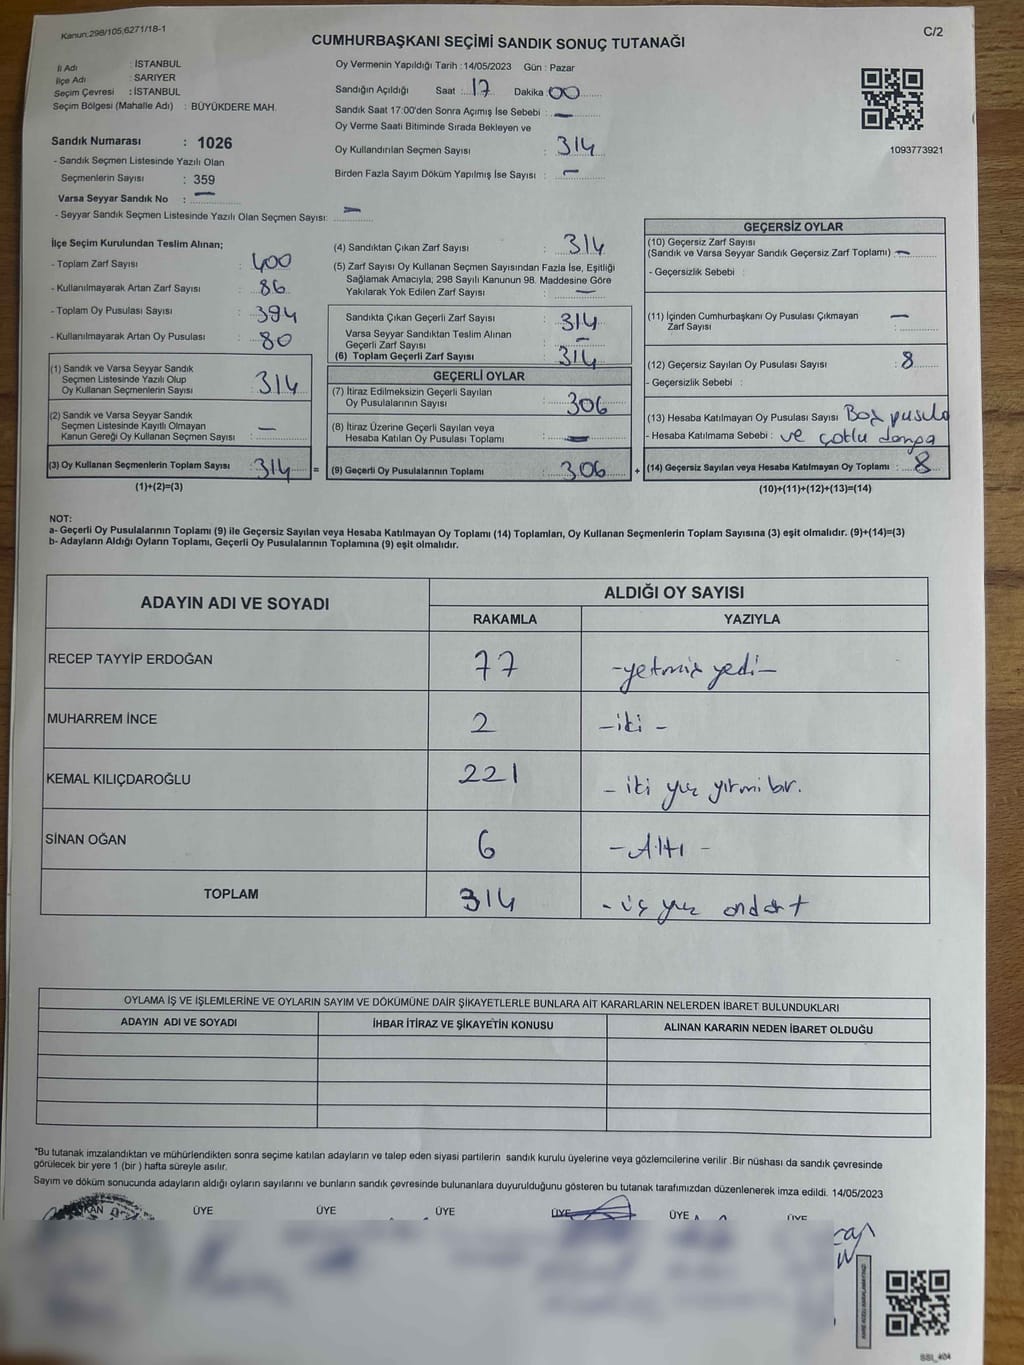 Kanun:298/105;6271/18-1
C/2
CUMHURBAŞKANI SEÇİMİ SANDIK SONUÇ TUTANAĞI
İl Adı : İSTANBUL
İlçe Adı : SARIYER
Seçim Çevresi : İSTANBUL
Seçim Bölgesi (Mahalle Adı) : BÜYÜKDERE MAH.
Oy Vermenin Yapıldığı Tarih :14/05/2023 Gün : Pazar
Sandığın Açıldığı Saat : 17 Dakika 00
Sandık Saat 17:00'den Sonra Açımış İse Sebebi : —
Oy Verme Saati Bitiminde Sırada Bekleyen ve
Oy Kullandırılan Seçmen Sayısı : 314
Birden Fazla Sayım Döküm Yapılmış İse Sayısı : —
1093773921
Sandık Numarası : 1026
- Sandık Seçmen Listesinde Yazılı Olan
Seçmenlerin Sayısı : 359
Varsa Seyyar Sandık No : —
- Seyyar Sandık Seçmen Listesinde Yazılı Olan Seçmen Sayısı: —
İlçe Seçim Kurulundan Teslim Alınan;
- Toplam Zarf Sayısı : 400
- Kullanılmayarak Artan Zarf Sayısı : 86
- Toplam Oy Pusulası Sayısı : 394
- Kullanılmayarak Artan Oy Pusulası : 80
(1) Sandık ve Varsa Seyyar Sandık
Seçmen Listesinde Yazılı Olup
Oy Kullanan Seçmenlerin Sayısı : 314
(2) Sandık ve Varsa Seyyar Sandık
Seçmen Listesinde Kayıtlı Olmayan
Kanun Gereği Oy Kullanan Seçmen Sayısı : —
(3) Oy Kullanan Seçmenlerin Toplam Sayısı : 314 =
(1)+(2)=(3)
(4) Sandıktan Çıkan Zarf Sayısı : 314
(5) Zarf Sayısı Oy Kullanan Seçmen Sayısından Fazla İse, Eşitliği
Sağlamak Amacıyla; 298 Sayılı Kanunun 98. Maddesine Göre
Yakılarak Yok Edilen Zarf Sayısı : —
Sandıkta Çıkan Geçerli Zarf Sayısı : 314
Varsa Seyyar Sandıktan Teslim Alınan
Geçerli Zarf Sayısı : —
(6) Toplam Geçerli Zarf Sayısı : 314
GEÇERLİ OYLAR
(7) İtiraz Edilmeksizin Geçerli Sayılan
Oy Pusulalarının Sayısı : 306
(8) İtiraz Üzerine Geçerli Sayılan veya
Hesaba Katılan Oy Pusulası Toplamı : —
(9) Geçerli Oy Pusulalarının Toplamı : 306 +
GEÇERSİZ OYLAR
(10) Geçersiz Zarf Sayısı
(Sandık ve Varsa Seyyar Sandık Geçersiz Zarf Toplamı) —
- Geçersizlik Sebebi :
(11) İçinden Cumhurbaşkanı Oy Pusulası Çıkmayan
Zarf Sayısı : —
(12) Geçersiz Sayılan Oy Pusulası Sayısı : 8
- Geçersizlik Sebebi :
(13) Hesaba Katılmayan Oy Pusulası Sayısı Boş pusula
- Hesaba Katılmama Sebebi : ve çoklu damga
(14) Geçersiz Sayılan veya Hesaba Katılmayan Oy Toplamı : 8
(10)+(11)+(12)+(13)=(14)
NOT:
a- Geçerli Oy Pusulalarının Toplamı (9) ile Geçersiz Sayılan veya Hesaba Katılmayan Oy Toplamı (14) Toplamları, Oy Kullanan Seçmenlerin Toplam Sayısına (3) eşit olmalıdır. (9)+(14)=(3)
b- Adayların Aldığı Oyların Toplamı, Geçerli Oy Pusulalarının Toplamına (9) eşit olmalıdır.
ADAYIN ADI VE SOYADI
ALDIĞI OY SAYISI
RAKAMLA YAZIYLA
RECEP TAYYİP ERDOĞAN 77 -yetmiş yedi-
MUHARREM İNCE 2 -iki-
KEMAL KILIÇDAROĞLU 221 - iki yüz yirmi bir.
SİNAN OĞAN 6 -Altı-
TOPLAM 314 - üç yüz ondört
OYLAMA İŞ VE İŞLEMLERİNE VE OYLARIN SAYIM VE DÖKÜMÜNE DAİR ŞİKAYETLERLE BUNLARA AİT KARARLARIN NELERDEN İBARET BULUNDUKLARI
ADAYIN ADI VE SOYADI İHBAR İTİRAZ VE ŞİKAYETİN KONUSU ALINAN KARARIN NEDEN İBARET OLDUĞU
*Bu tutanak imzalandıktan ve mühürlendikten sonra seçime katılan adayların ve talep eden siyasi partilerin sandık kurulu üyelerine veya gözlemcilerine verilir .Bir nüshası da sandık çevresinde
görülecek bir yere 1 (bir ) hafta süreyle asılır.
Sayım ve döküm sonucunda adayların aldığı oyların sayılarını ve bunların sandık çevresinde bulunanlara duyurulduğunu gösteren bu tutanak tarafımızdan düzenlenerek imza edildi. 14/05/2023
BAŞKAN ÜYE ÜYE ÜYE ÜYE ÜYE ÜYE